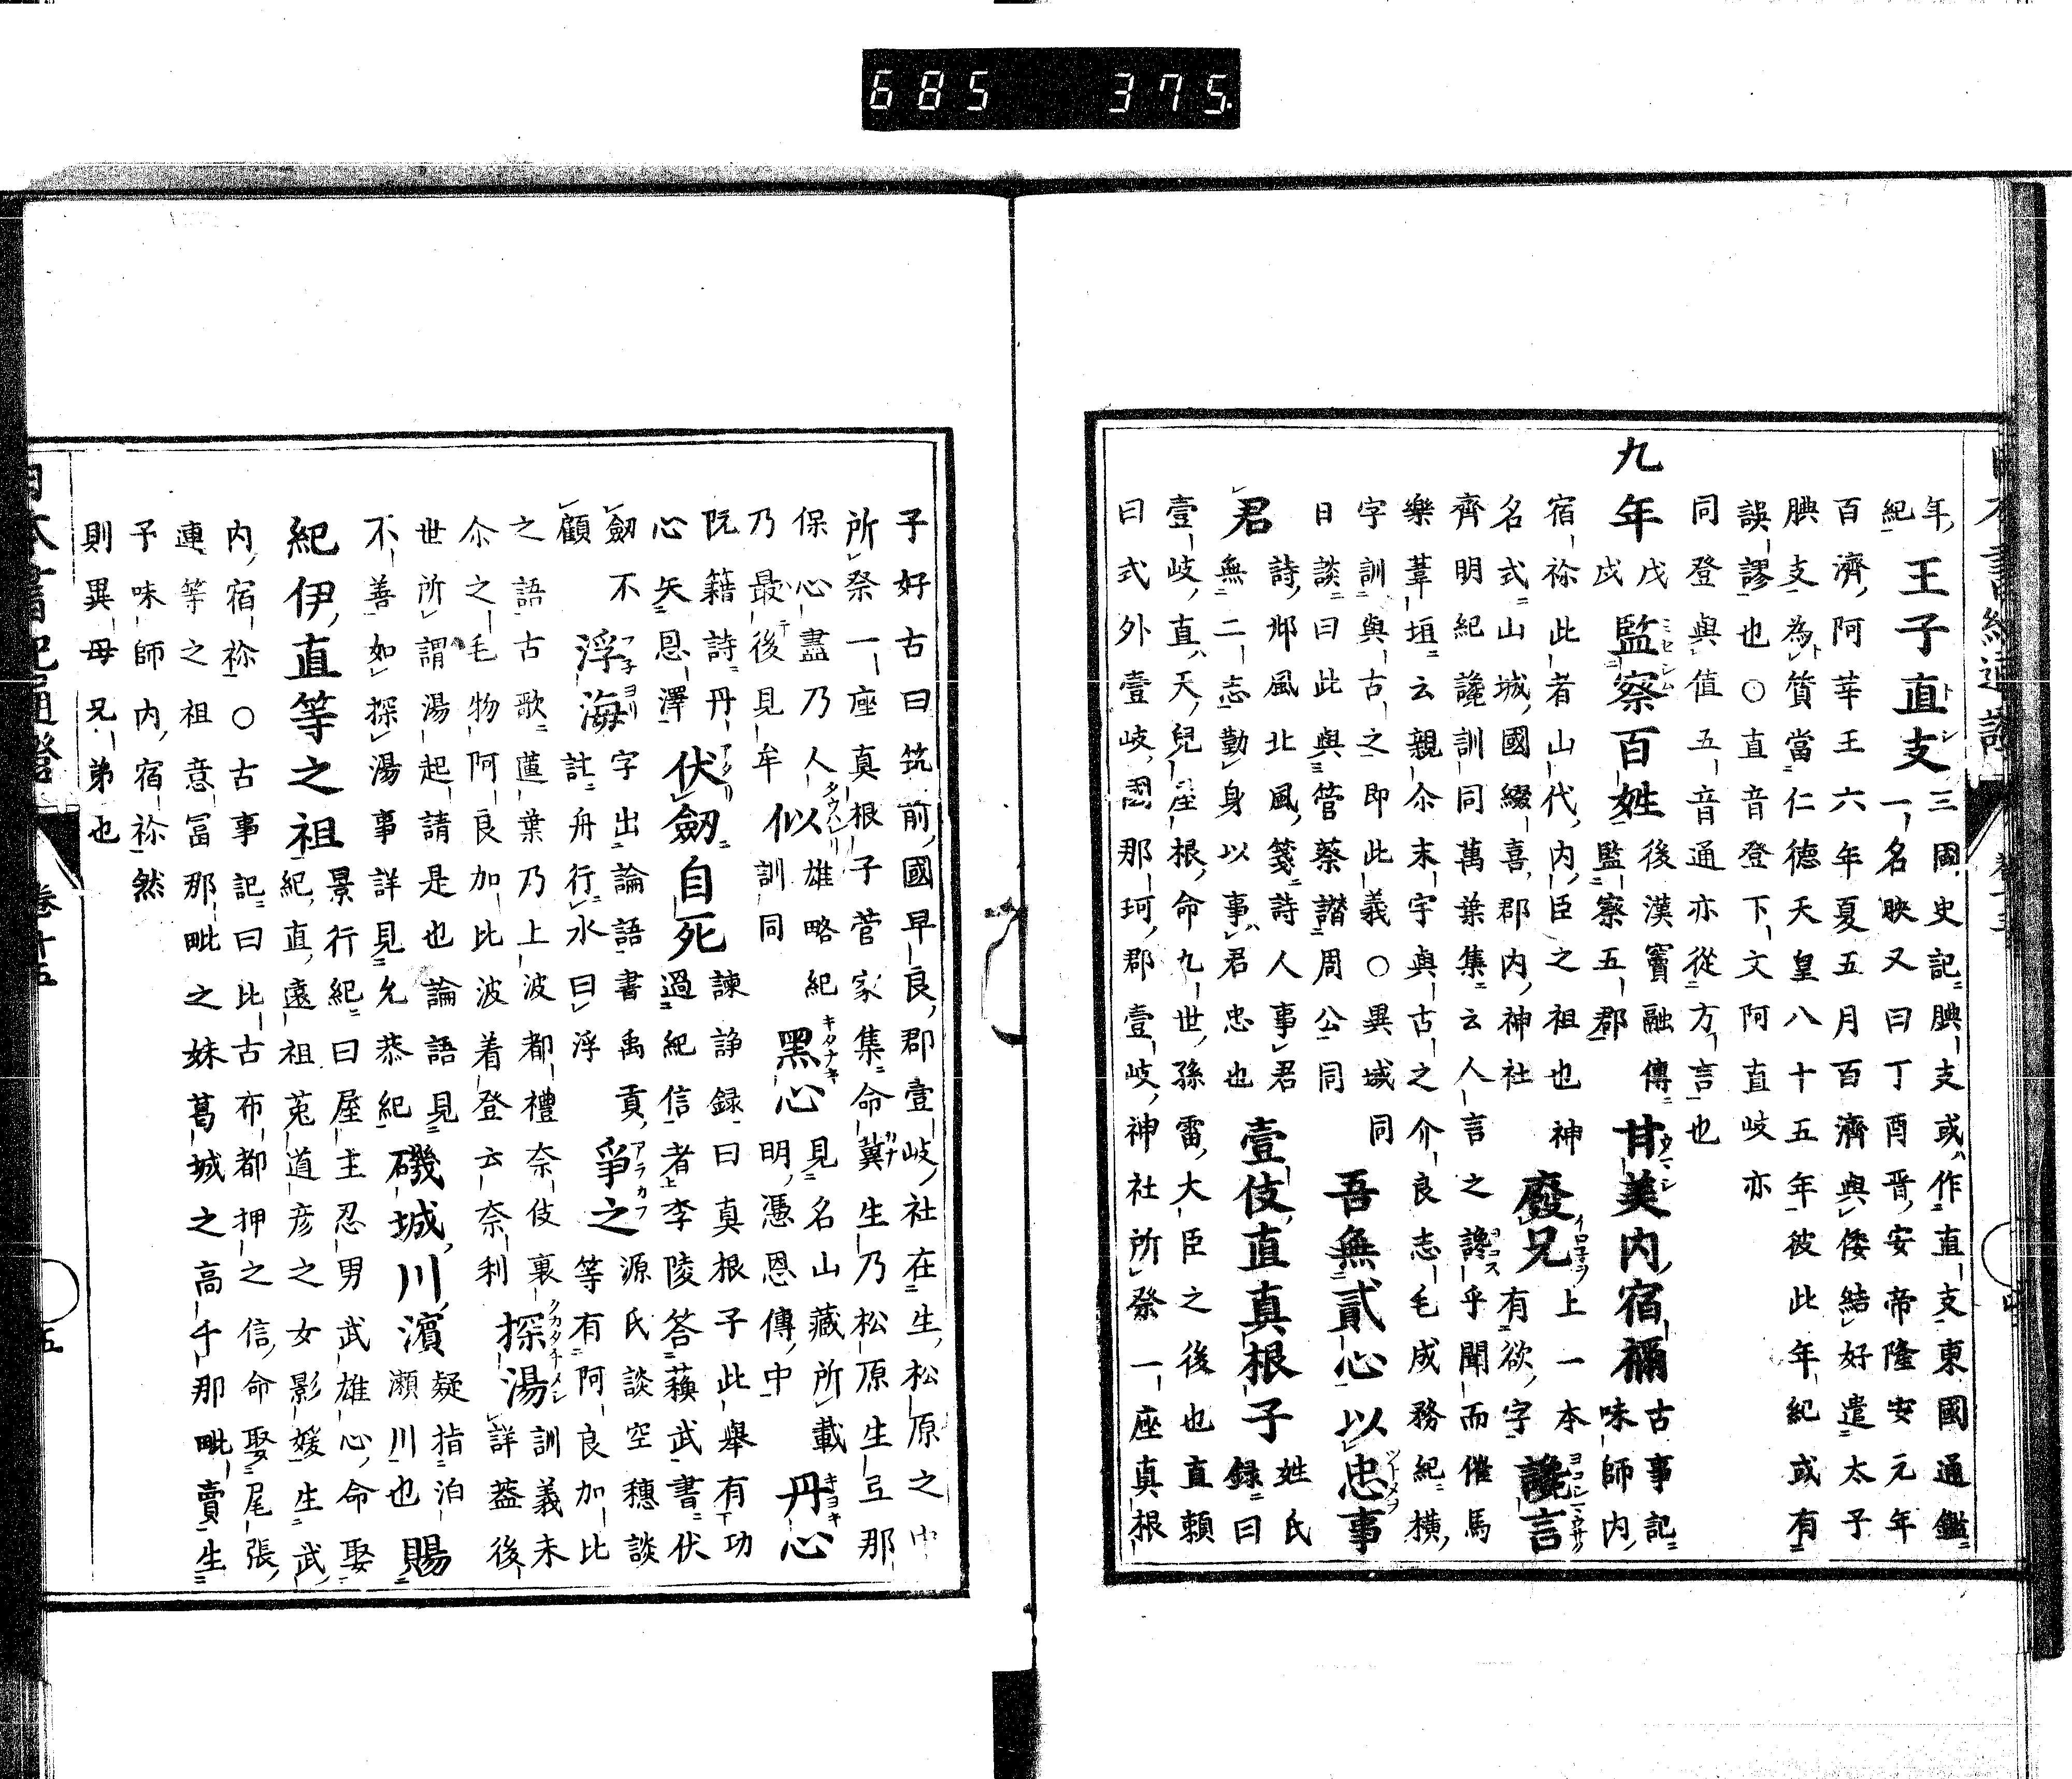 685 375.
年、王子直支三國史記腆支或作直支東國通鑑
紀一名映又曰丁酉晋安帝隆安元年
百濟阿莘王六年夏五月百濟與倭結好遣太子
腆支為質當仁德天皇八十五年彼此年紀或有
誤謬也○直音登下文阿直岐亦
同登與値五音通亦從方言也
九年戊戌監察百姓後漢竇融傳監察五郡甘美内宿禰古事記味師内
宿祢此者山代内臣之祖也神名式山城國綴喜郡内神社廢兄上一本有欲字讒言
齊明紀讒訓同萬葉集云人言之讒乎聞而催馬
樂葦垣云親尒末宇與古之介良志毛成務紀橫
字訓與古之即此義○異域同
日談曰此與管蔡譖周公同吾無貳心以忠事
君詩邶風北風箋詩人事君無二志勤身以事君忠也壹伎直真根子姓氏錄曰
壹岐直天兒屋根命九世孫雷大臣之後也直賴
曰式外壹岐國那珂郡壹岐神社所祭一座真根
子好古曰筑前國早良郡壹岐社在生松原之中
所祭一座真根子菅家集命冀生乃松原生亙那
保心盡乃人似雄略紀訓同黑心見名山藏所載明憑恩傳中丹心
乃最後見牟
阮籍詩丹心矢恩澤伏劒自死諫諍錄曰真根子此舉有功過紀信者李陵答蘓武書伏
劒不顧浮海字出論語書禹貢註舟行水曰浮爭之源氏談空穗談等有阿良加比
之語古歌蓮葉乃上波都禮奈伎裏
尒之毛物阿良加比波着登云奈利探湯訓義未詳葢後
世所謂湯起請是也論語見
不善如探湯事詳見允恭紀磯城川濱疑指泊瀬川也賜
紀伊直等之祖景行紀曰屋主忍男武雄心命娶紀直遠祖菟道彦之女影媛生武
内宿祢○古事記曰比古布都押之信命娶尾張
連等之祖意冨那毗之妹葛城之高千那毗賣生
子味師内宿祢然
則異母兄弟也
日本書紀通證 卷十五 五